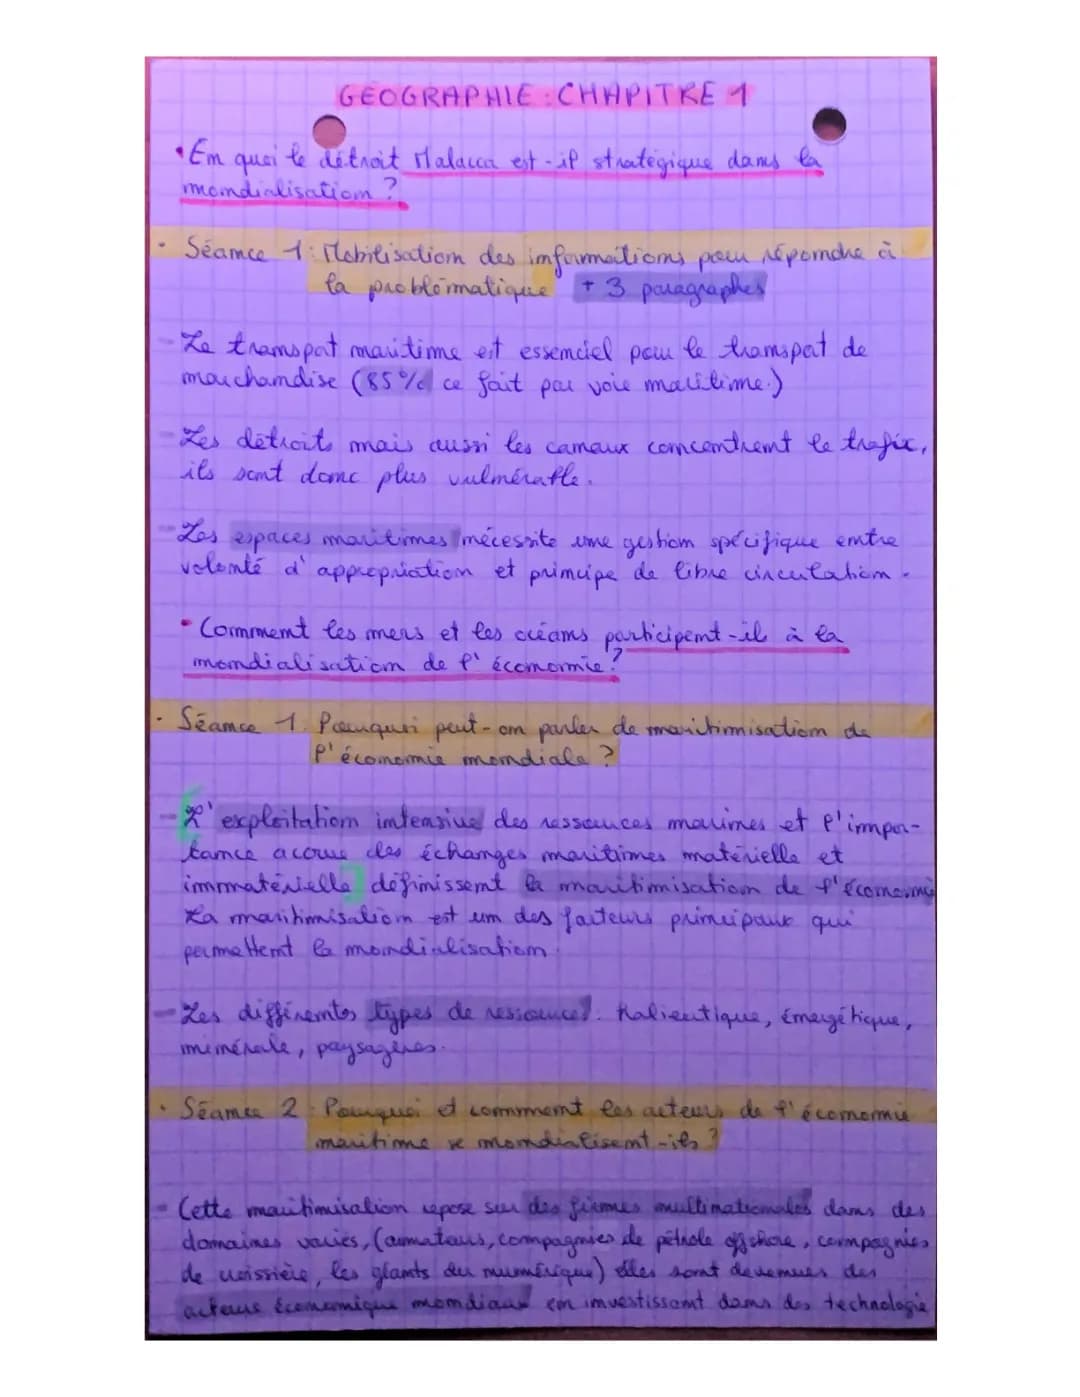 GEOGRAPHIE : CHAPITRE 1
• En quoi le détroit Malacca est-il stratégique dans la
mondialisation ?
• Séance 1 : Mobilisation des informations pour répondre à
la problématique + 3 paragraphes
- Le transpat maritime est essenciel pour le transpat de
marchandise (85% ce fait par voie maritime.)
- Les détroits mais aussi les canaux concentrent le trafic,
ils sont donc plus vulnérable.
- Les espaces maritimes nécessite une gestion spécifique entre
volonté d'appropriation et principe de libre circulation.
• Comment les mers et les océans participent-ils à la
mondialisation de l'économie ?
• Séance 1 : Pourquoi peut-on parler de maritimisation de
l'économie mondiale ?
- L'exploitation intensive des ressources marines et l'impor-
tance accrue des échanges maritimes matérielle et
immatérielle définissent la maritimisation de l'économie
La maritimisation est un des facteurs principaux qui
permettent la mondialisation.
- Les différentes types de ressource : halieutique, énergétique,
minérale, paysagères.
• Séance 2 : Pourquoi et comment les acteurs de l'économie
maritime se mondialisent-ils ?
- Cette maritimisation repose sur des firmes multinationales dans des
domaines variés, (armateurs, compagnies de pétrole offshore, compagnies
de croissière, les géants du numérique) elles sont devenues des
acteurs économique mondiaux en investissant dans des technologie